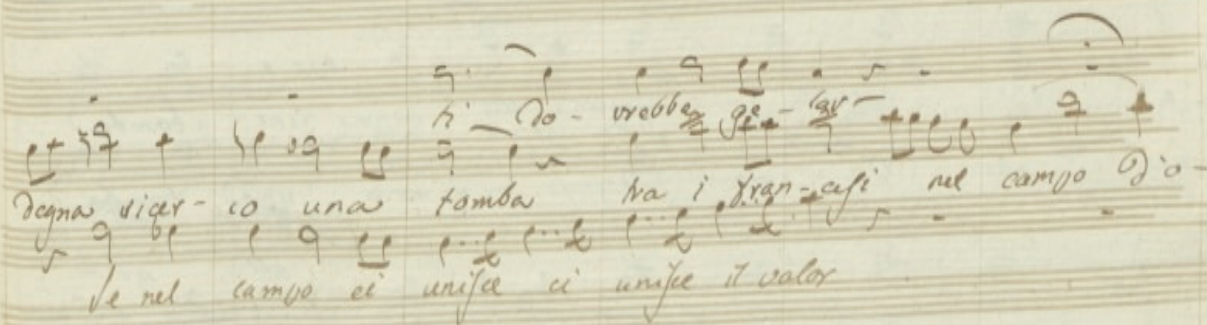 ti do- vrebbe ge- lar
degna ricer- co una tomba tra i Fran- cesi nel campo d'o-
Se nel campo ci unisce ci unisce il valor